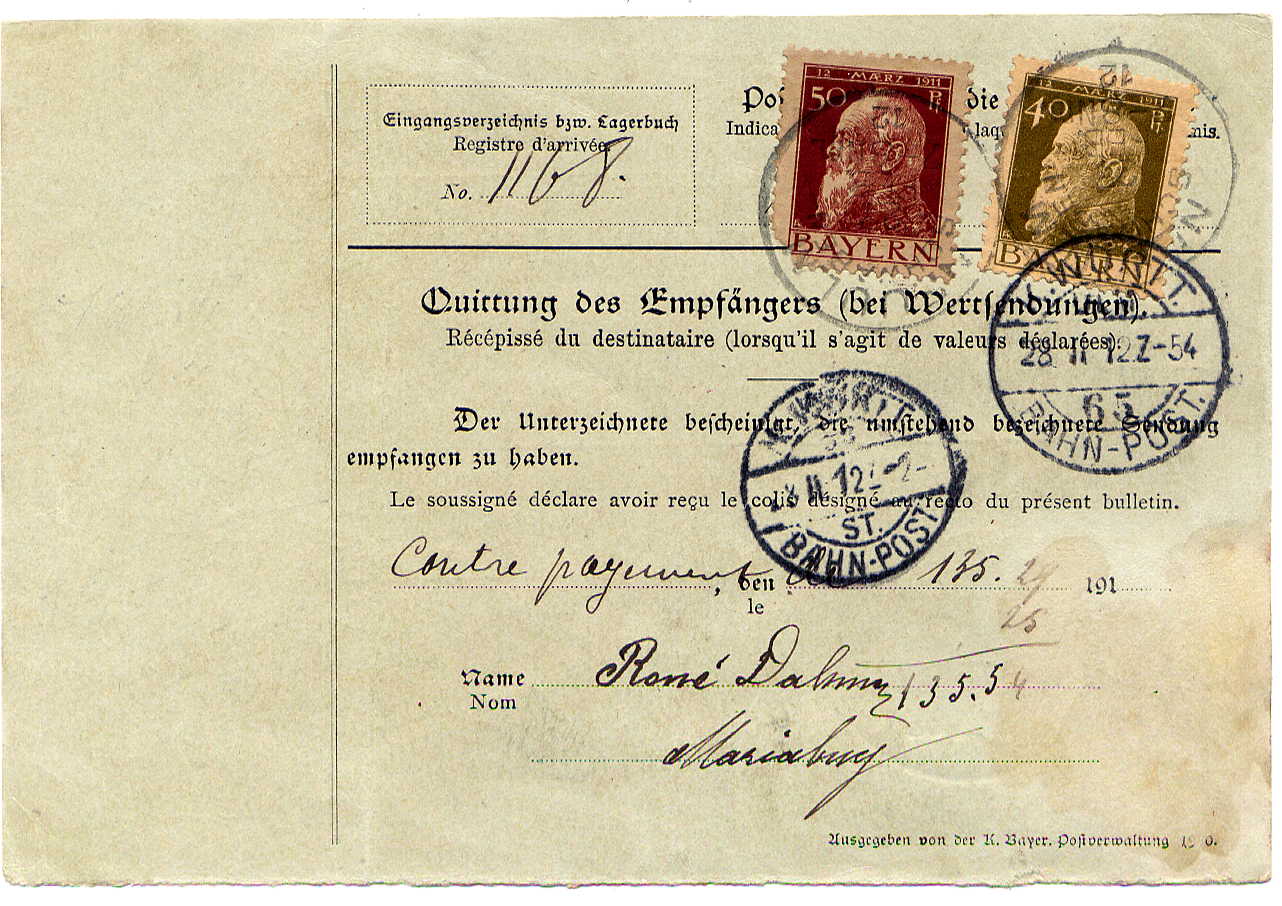 Eingangsverzeichnis bzw. Lagerbuch
Registre d'arrivée
No. 1168.
die
Indica
nis.
12 · MÆRZ 1911
50 Pf.
BAYERN
MÆRZ 1911
40 Pf.
BAYERN
Quittung des Empfängers (bei Wertsendungen).
Récépissé du destinataire (lorsqu'il s'agit de valeurs déclarées).
K. WÜRTT.
28 II 12 Z-54
65
BAHN-POST.
Der Unterzeichnete bescheinigt, die umstehend bezeichnete Sendung
empfangen zu haben.
Le soussigné déclare avoir reçu le colis désigné au recto du présent bulletin.
II 12
ST.
BAHN-POST
Contre payement, den 135.29 191
le
25
Name René
135.54
Nom
Ausgegeben von der K. Bayer. Postverwaltung